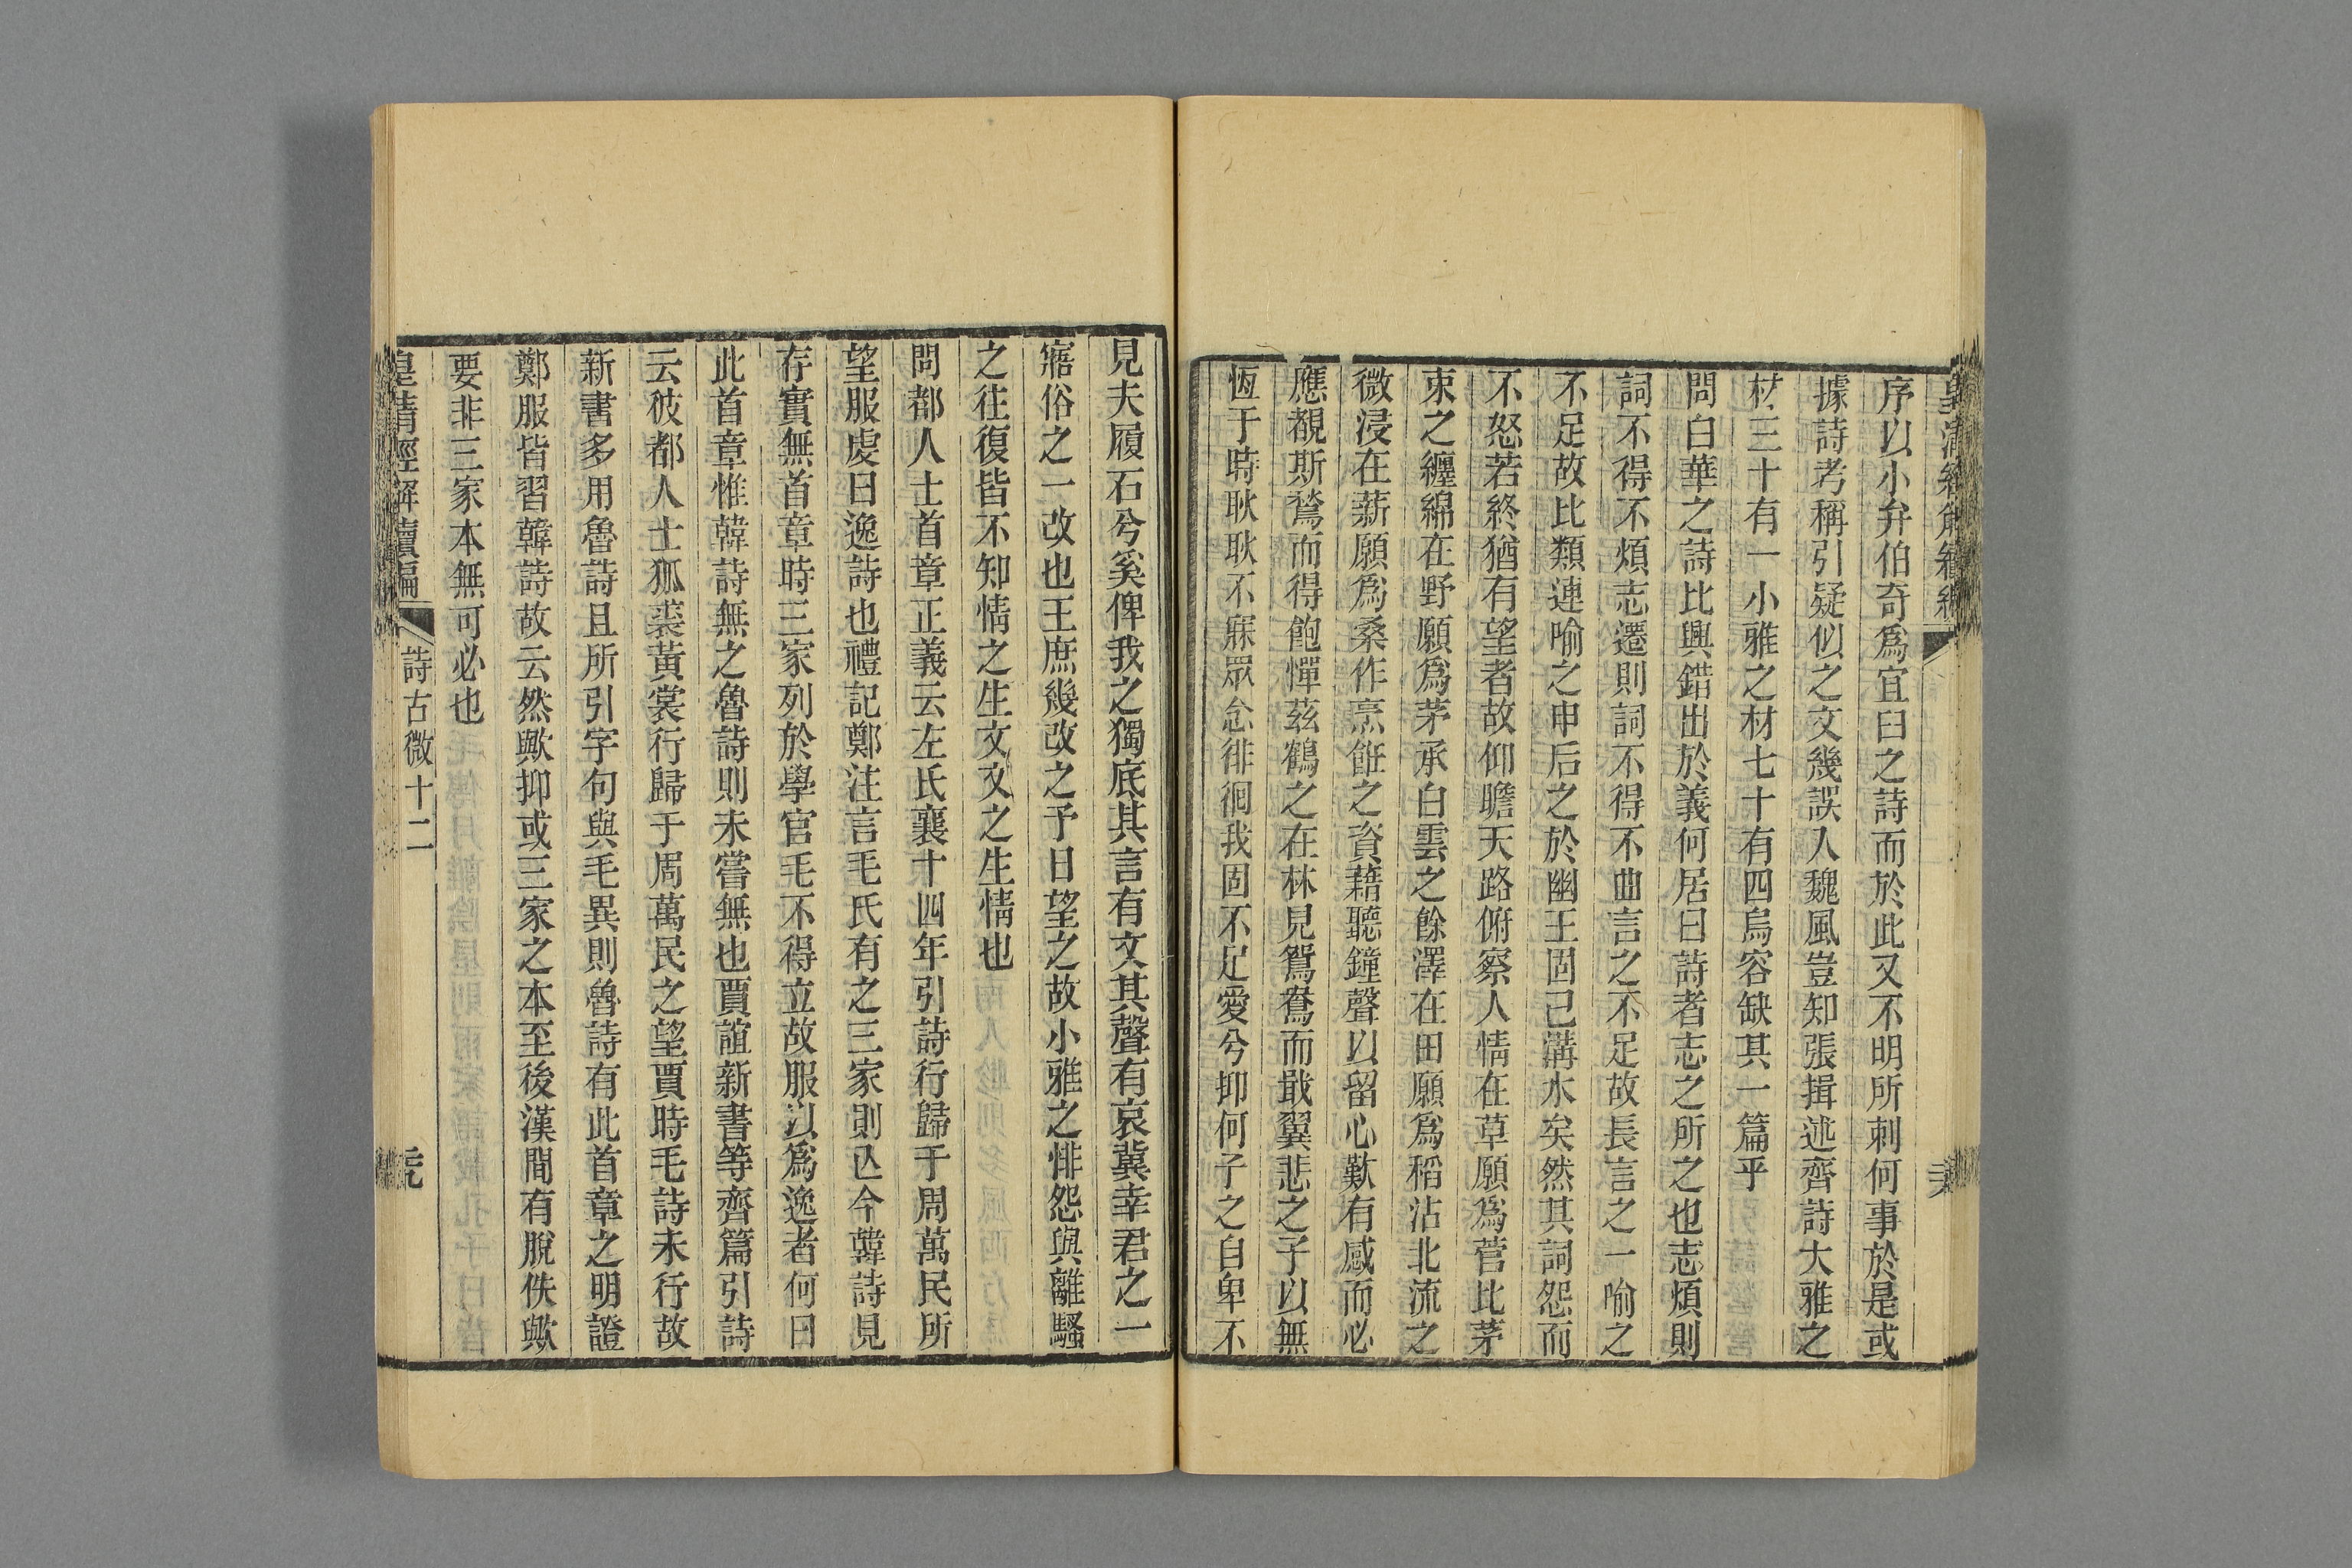 皇清經解續編
序以小弁伯奇爲宜臼之詩而於此又不明所刺何事於是或
據詩考稱引疑似之文幾誤入魏風豈知張揖述齊詩大雅之
材三十有一小雅之材七十有四烏容缺其一篇乎
問白華之詩比興錯出於義何居曰詩者志之所之也志煩則
詞不得不煩志遷則詞不得不曲言之不足故長言之一喻之
不足故比類連喻之申后之於幽王固己溝水矣然其詞怨而
不怒若終猶有望者故仰瞻天路俯察人情在草願爲菅比茅
束之纏綿在野願爲茅承白雲之餘澤在田願爲稻沾北流之
微浸在薪願爲桑作烹飪之資藉聽鐘聲以留心歎有感而必
應覩斯鶖而得飽憚茲鶴之在林見鴛鴦而戢翼悲之子以無
恆于時耿耿不寐眾念徘徊我固不足愛兮抑何子之自卑不
見夫履石兮奚俾我之獨底其言有文其聲有哀冀幸君之一
寤俗之一改也王庶幾改之予日望之故小雅之悱怨與離騷
之往復皆不知情之生文文之生情也
問都人士首章正義云左氏襄十四年引詩行歸于周萬民所
望服虔曰逸詩也禮記鄭注言毛氏有之三家則亾今韓詩見
存實無首章時三家列於學官毛不得立故服以爲逸者何曰
此首章惟韓詩無之魯詩則未嘗無也賈誼新書等齊篇引詩
云彼都人士狐裘黃裳行歸于周萬民之望賈時毛詩未行故
新書多用魯詩且所引字句與毛異則魯詩有此首章之明證
鄭服皆習韓詩故云然歟抑或三家之本至後漢間有脫佚歟
要非三家本無可必也
皇清經解續編 詩古微十二